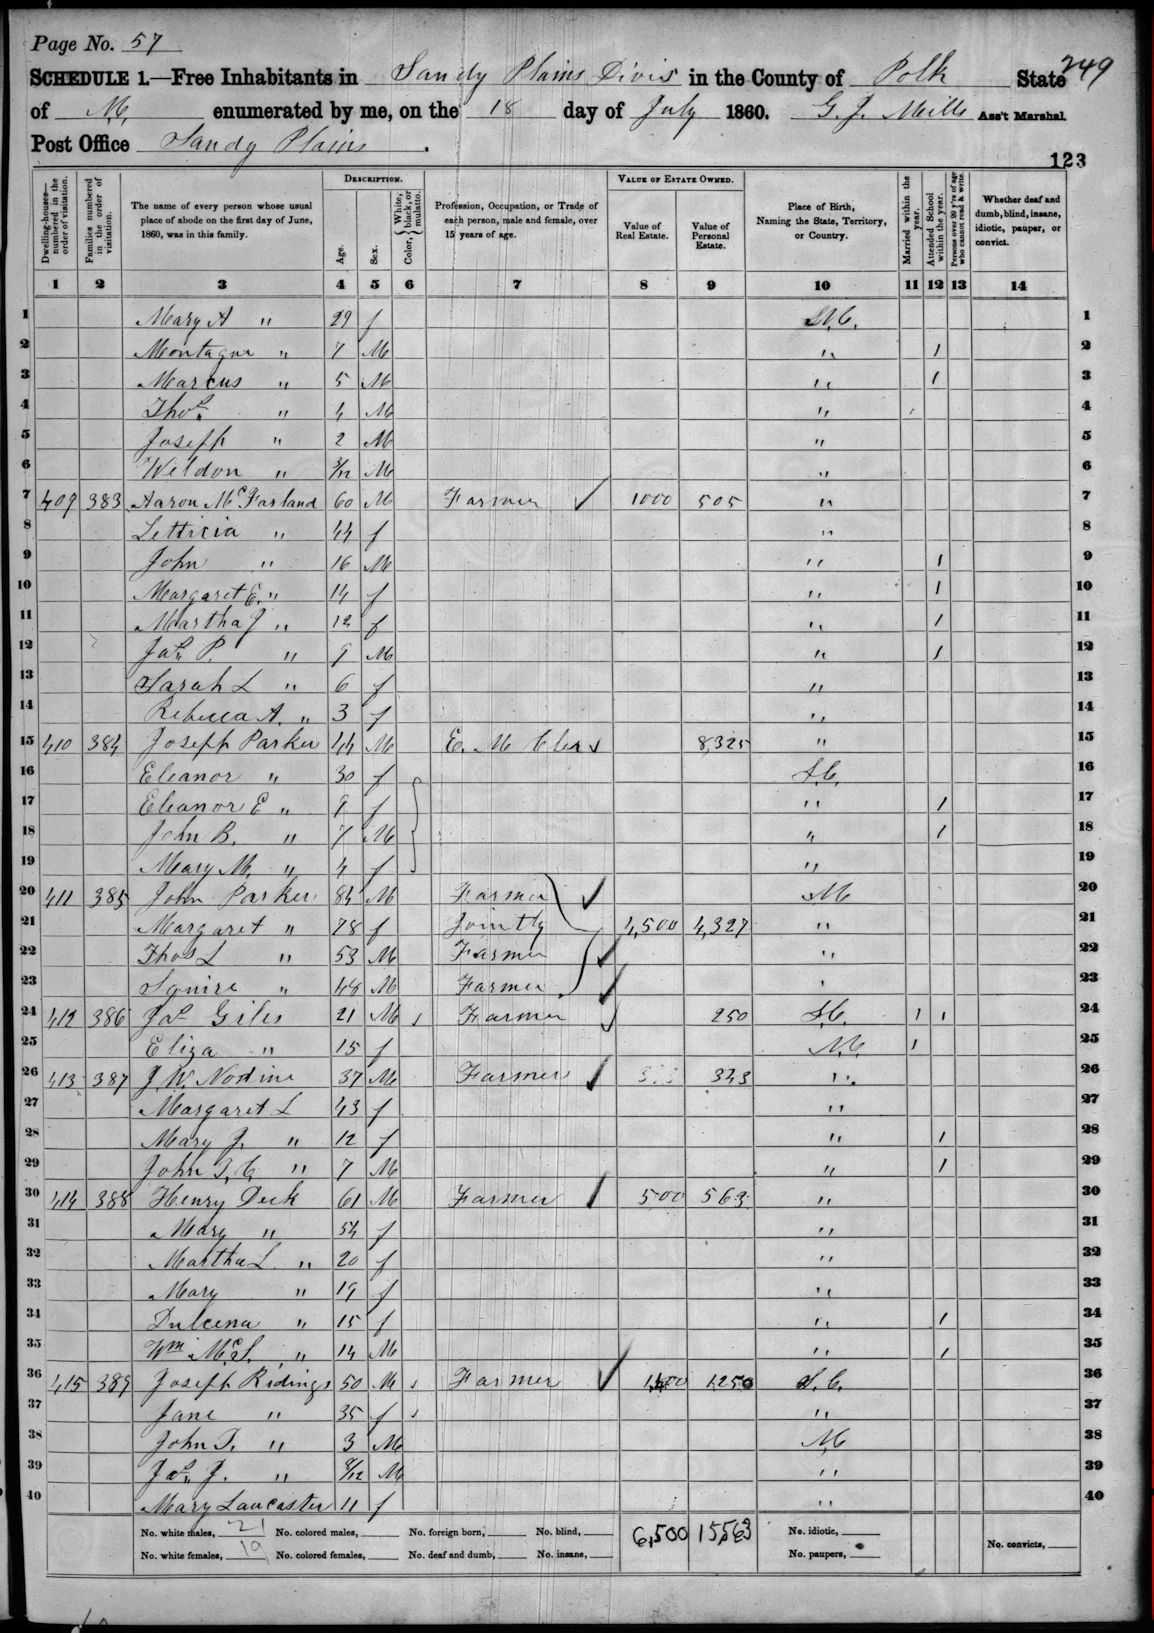 Page No. 57
249
SCHEDULE 1.—Free Inhabitants in Sandy Plains Divis in the County of Polk State
of N.C. enumerated by me, on the 18 day of July 1860. G. J. Mills Ass't Marshal
Post Office Sandy Plains.
123
Dwelling-houses—numbered in the order of visitation.
Families numbered in the order of visitation.
The name of every person whose usual place of abode on the first day of June, 1860, was in this family.
DESCRIPTION.
Age.
Sex.
Color, { White, black, or mulatto.
Profession, Occupation, or Trade of each person, male and female, over 15 years of age.
VALUE OF ESTATE OWNED.
Value of Real Estate.
Value of Personal Estate.
Place of Birth, Naming the State, Territory, or Country.
Married within the year.
Attended School within the year.
Persons over 20 y'rs of age who cannot read & write.
Whether deaf and dumb, blind, insane, idiotic, pauper, or convict.
1 2 3 4 5 6 7 8 9 10 11 12 13 14
1 Mary A " 29 f N.C. 1
2 Montague " 7 M " 1 2
3 Marcus " 5 M " 1 3
4 Thos. " 4 M " 4
5 Joseph " 2 M " 5
6 Weldon " 3/12 M " 6
7 409 383 Aaron McFarland 60 M Farmer 1000 505 " 7
8 Letticia " 44 f " 8
9 John " 16 M " 1 9
10 Margaret E. " 14 f " 1 10
11 Martha J " 12 f " 1 11
12 Jas. P. " 9 M " 1 12
13 Sarah L " 6 f " 13
14 Rebecca A. " 3 f " 14
15 410 384 Joseph Parker 44 M E. M 8,325 " 15
16 Eleanor " 30 f S.C. 16
17 Eleanor E " 9 f " 1 17
18 John B. " 7 M " 1 18
19 Mary M. " 4 f " 19
20 411 385 John Parker 84 M Farmer NC 20
21 Margaret " 78 f Jointly 4,500 4,327 " 21
22 Thos L " 53 M Farmer " 22
23 Squire " 48 M Farmer " 23
24 412 386 Jas Giles 21 M Farmer 250 S.C. 1 1 24
25 Eliza " 15 f N.C. 1 25
26 413 387 J. W. Nodine 37 M Farmer 343 " 26
27 Margaret L 43 f " 27
28 Mary J. " 12 f " 1 28
29 John T. C. " 7 M " 1 29
30 414 388 Henry Deck 61 M Farmer 500 563 " 30
31 Mary " 54 f " 31
32 Martha L. " 20 f " 32
33 Mary " 19 f " 33
34 Dulcena " 15 f " 1 34
35 Wm McS. " 14 M " 1 35
36 415 389 Joseph Ridings 50 M Farmer 1250 S.C. 36
37 Jane " 35 f " 37
38 John T. " 3 M NC 38
39 Jas. J. " 8/12 M " 39
40 Mary Lancaster 11 f " 40
No. white males, 21 No. colored males, No. foreign born, No. blind, 6,500 15,563 No. idiotic,
No. white females, 19 No. colored females, No. deaf and dumb, No. insane, No. paupers, No. convicts,